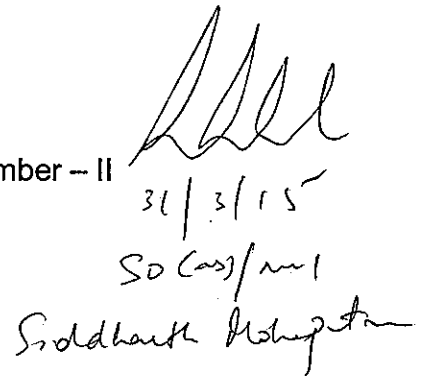 mber – II
31/3/15
SO
Siddharth Mohapatra